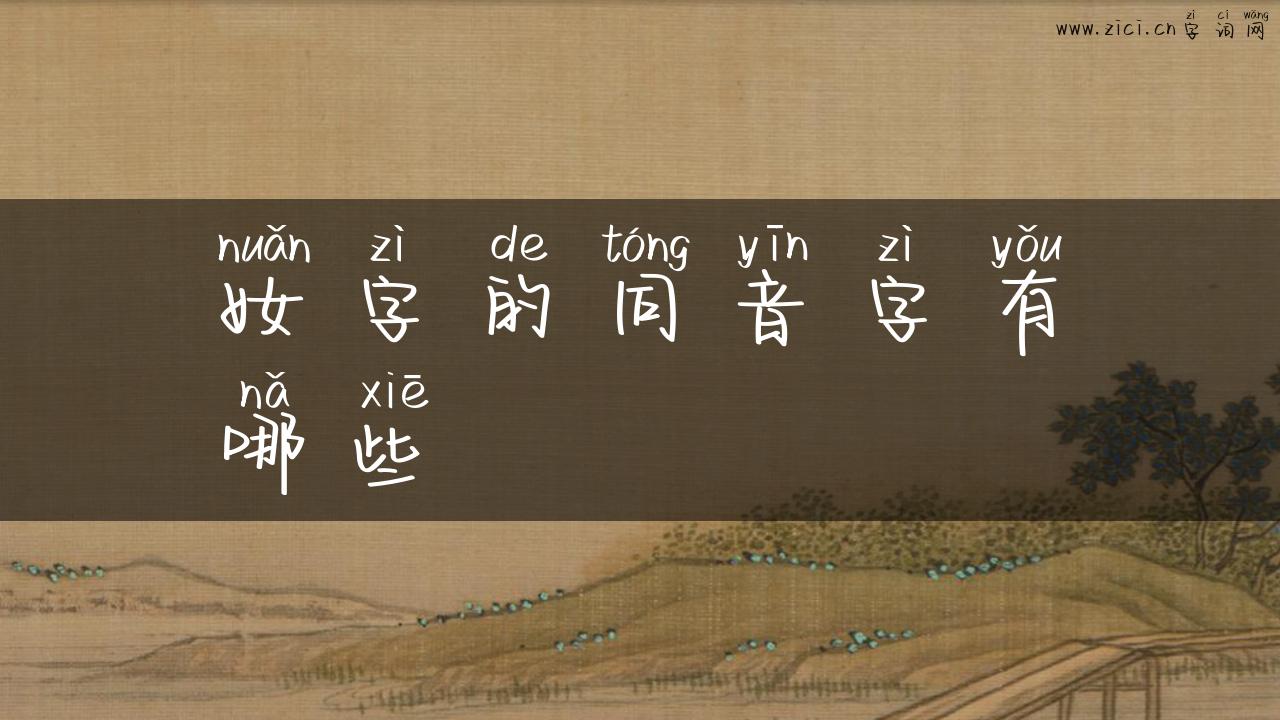 zì cí wǎng
www.zici.cn 字词网
nuǎn zì de tóng yīn zì yǒu
奻字的同音字有
nǎ xiē
哪些